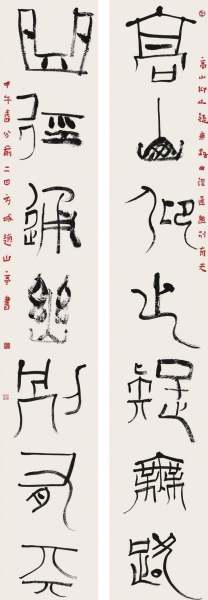 高山仰止疑無路曲徑通幽別有天
高山仰止疑無路
曲徑通幽別有天
甲午春分前二日方城趙山亭書